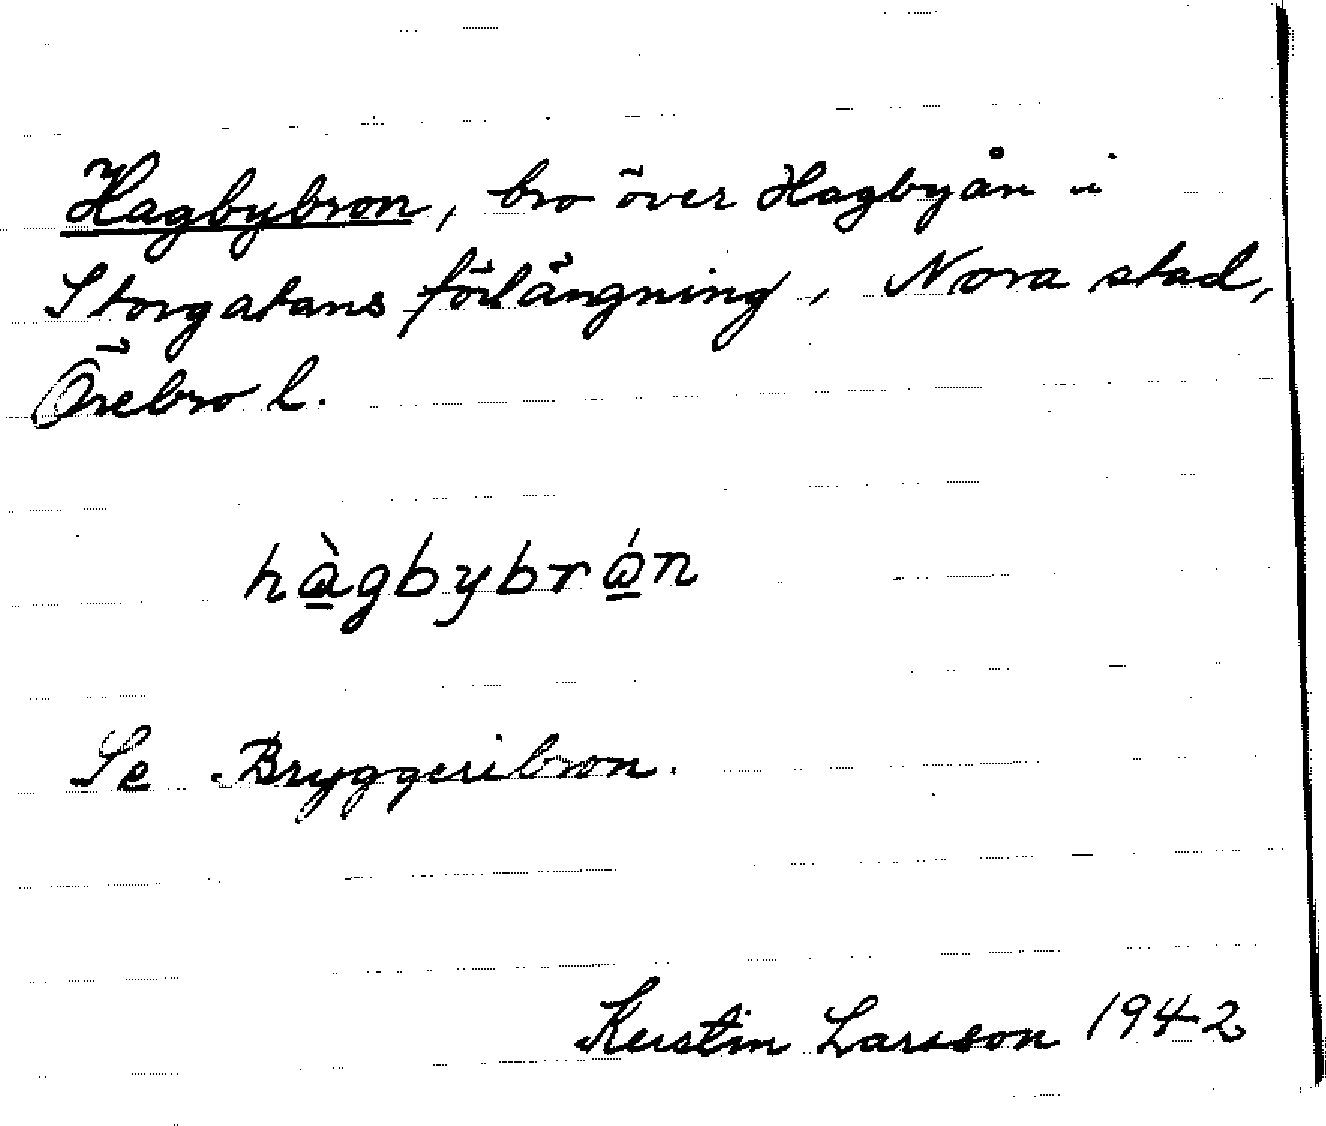 Hagbybron, bro över Hagbyån i
Storgatans förlängning, Nora stad,
Örebro l.
hàgbybrón
Se Bryggeribron.
Kerstin Larsson 1942